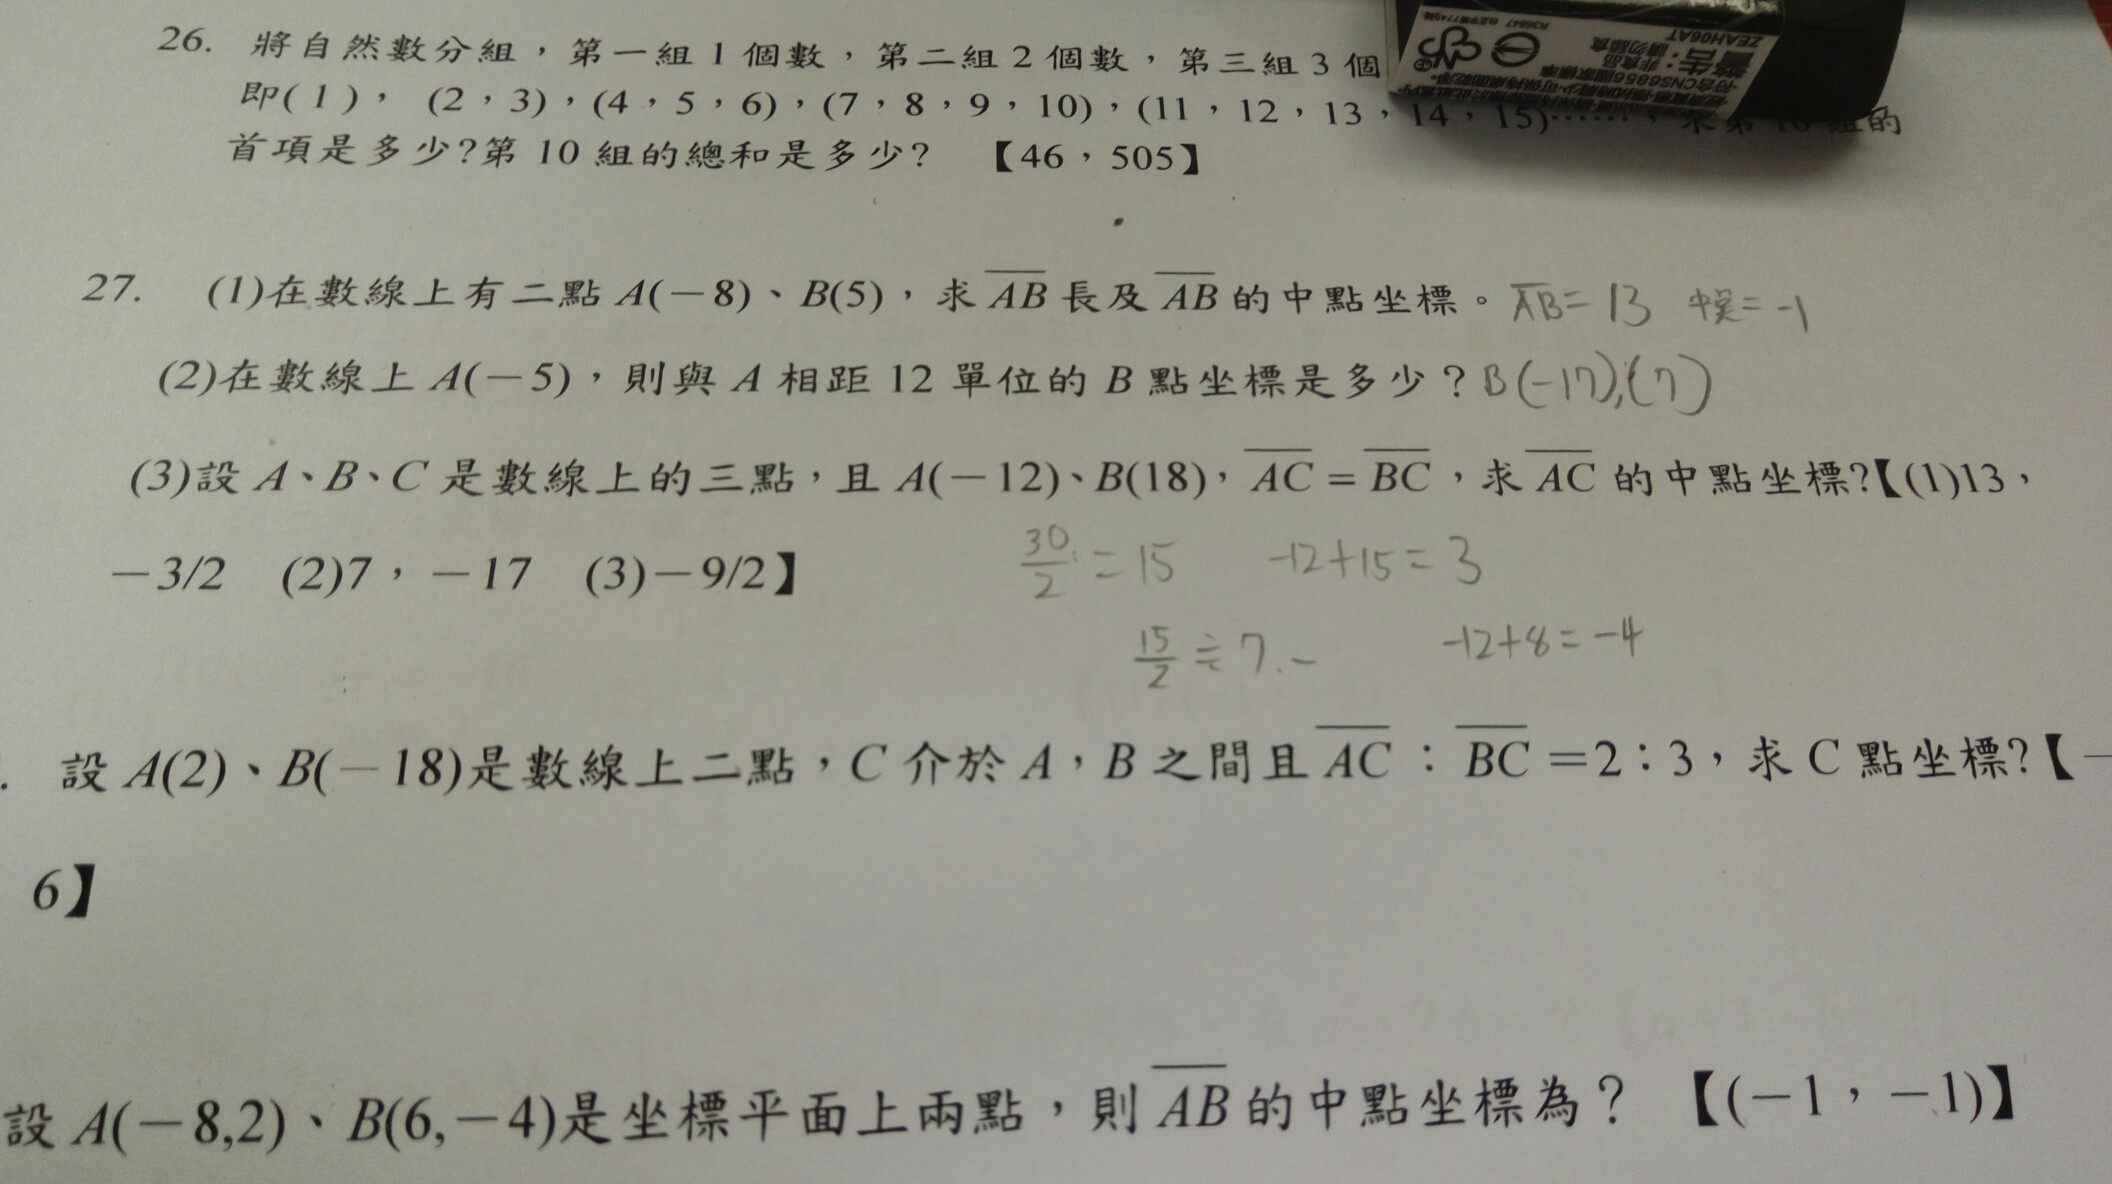 26. 將自然數分組，第一組 1 個數，第二組 2 個數，第三組 3 個
即(1)，(2，3)，(4，5，6)，(7，8，9，10)，(11，12，13，14，15)……，求第 10 組的
首項是多少?第 10 組的總和是多少? 【46，505】
警告：請勿吞食
非食品
ZEAH06AT
符合CNS6856國家標準
R36847
27. (1)在數線上有二點 A(－8)、B(5)，求 AB 長及 AB 的中點坐標。 AB = 13 中點 = -1
(2)在數線上 A(－5)，則與 A 相距 12 單位的 B 點坐標是多少？ B(-17),(7)
(3)設 A、B、C 是數線上的三點，且 A(－12)、B(18)，AC = BC，求 AC 的中點坐標?【(1)13，
－3/2 (2)7，－17 (3)－9/2】
30/2 = 15 -12+15 = 3
15/2 ≒ 7.- -12+8 = -4
. 設 A(2)、B(－18)是數線上二點，C 介於 A，B 之間且 AC：BC＝2：3，求 C 點坐標?【－
6】
設 A(－8,2)、B(6,－4)是坐標平面上兩點，則 AB 的中點坐標為？ 【(－1，－1)】